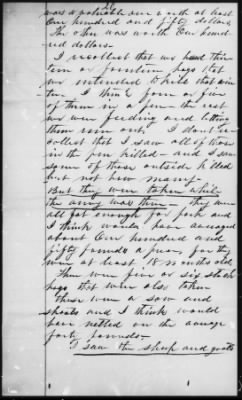 was a valuable one worth at least
One hundred and fifty dollars.
The other was worth One hund-
red dollars.
I recollect that we had thir-
teen or fourteen hogs that
we intended to kill that win-
ter. I think four or five
of them in a pen - the rest
we were feeding and letting
them run out. I don't re-
collect that I saw all of those
in the pen killed - and I saw
some of those outside killed
but not how many -
But they were taken while
the army was there - they were
all fat enough for pork and
I think would have averaged
about One hundred and
fifty pounds a piece, for they
were at least 18 months old.
There were five or six stock
hogs that were also taken
these were a sow and
shoats and I think would
have netted on the average
forty pounds -
I saw the sheep and goats